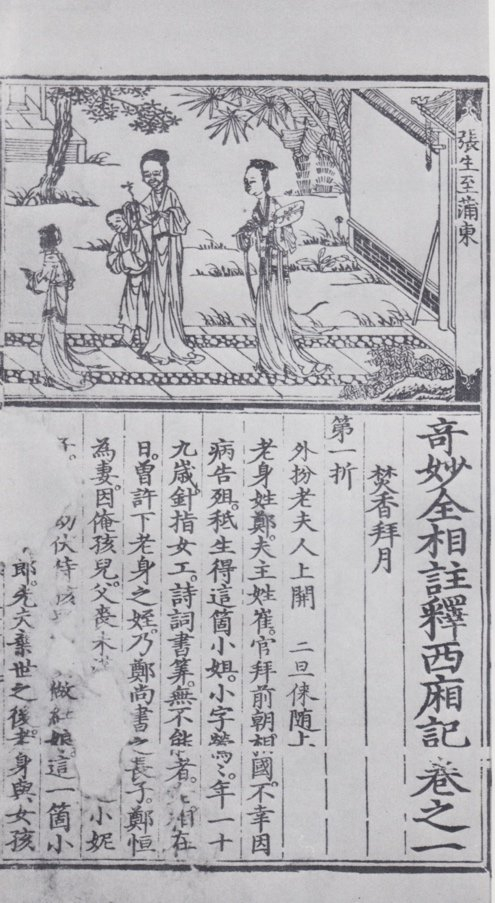 張生至蒲東
奇妙全相註釋西廂記 卷之一
焚香拜月
第一折
外扮老夫人上開 二旦倈随上
老身姓鄭。夫主姓崔。官拜前朝相國。不幸因
病告殂。秪生得這箇小姐。小字鶯〻。年一十
九歲。針指女工。詩詞書筭。無不能者。在
日。曾許下老身之姪。乃鄭尚書之長子。鄭恒
為妻。因俺孩兒。父喪未 小妮
子。幼伏侍孩 做紅娘。這一箇小
郎。先夫棄世之後。老身與女孩